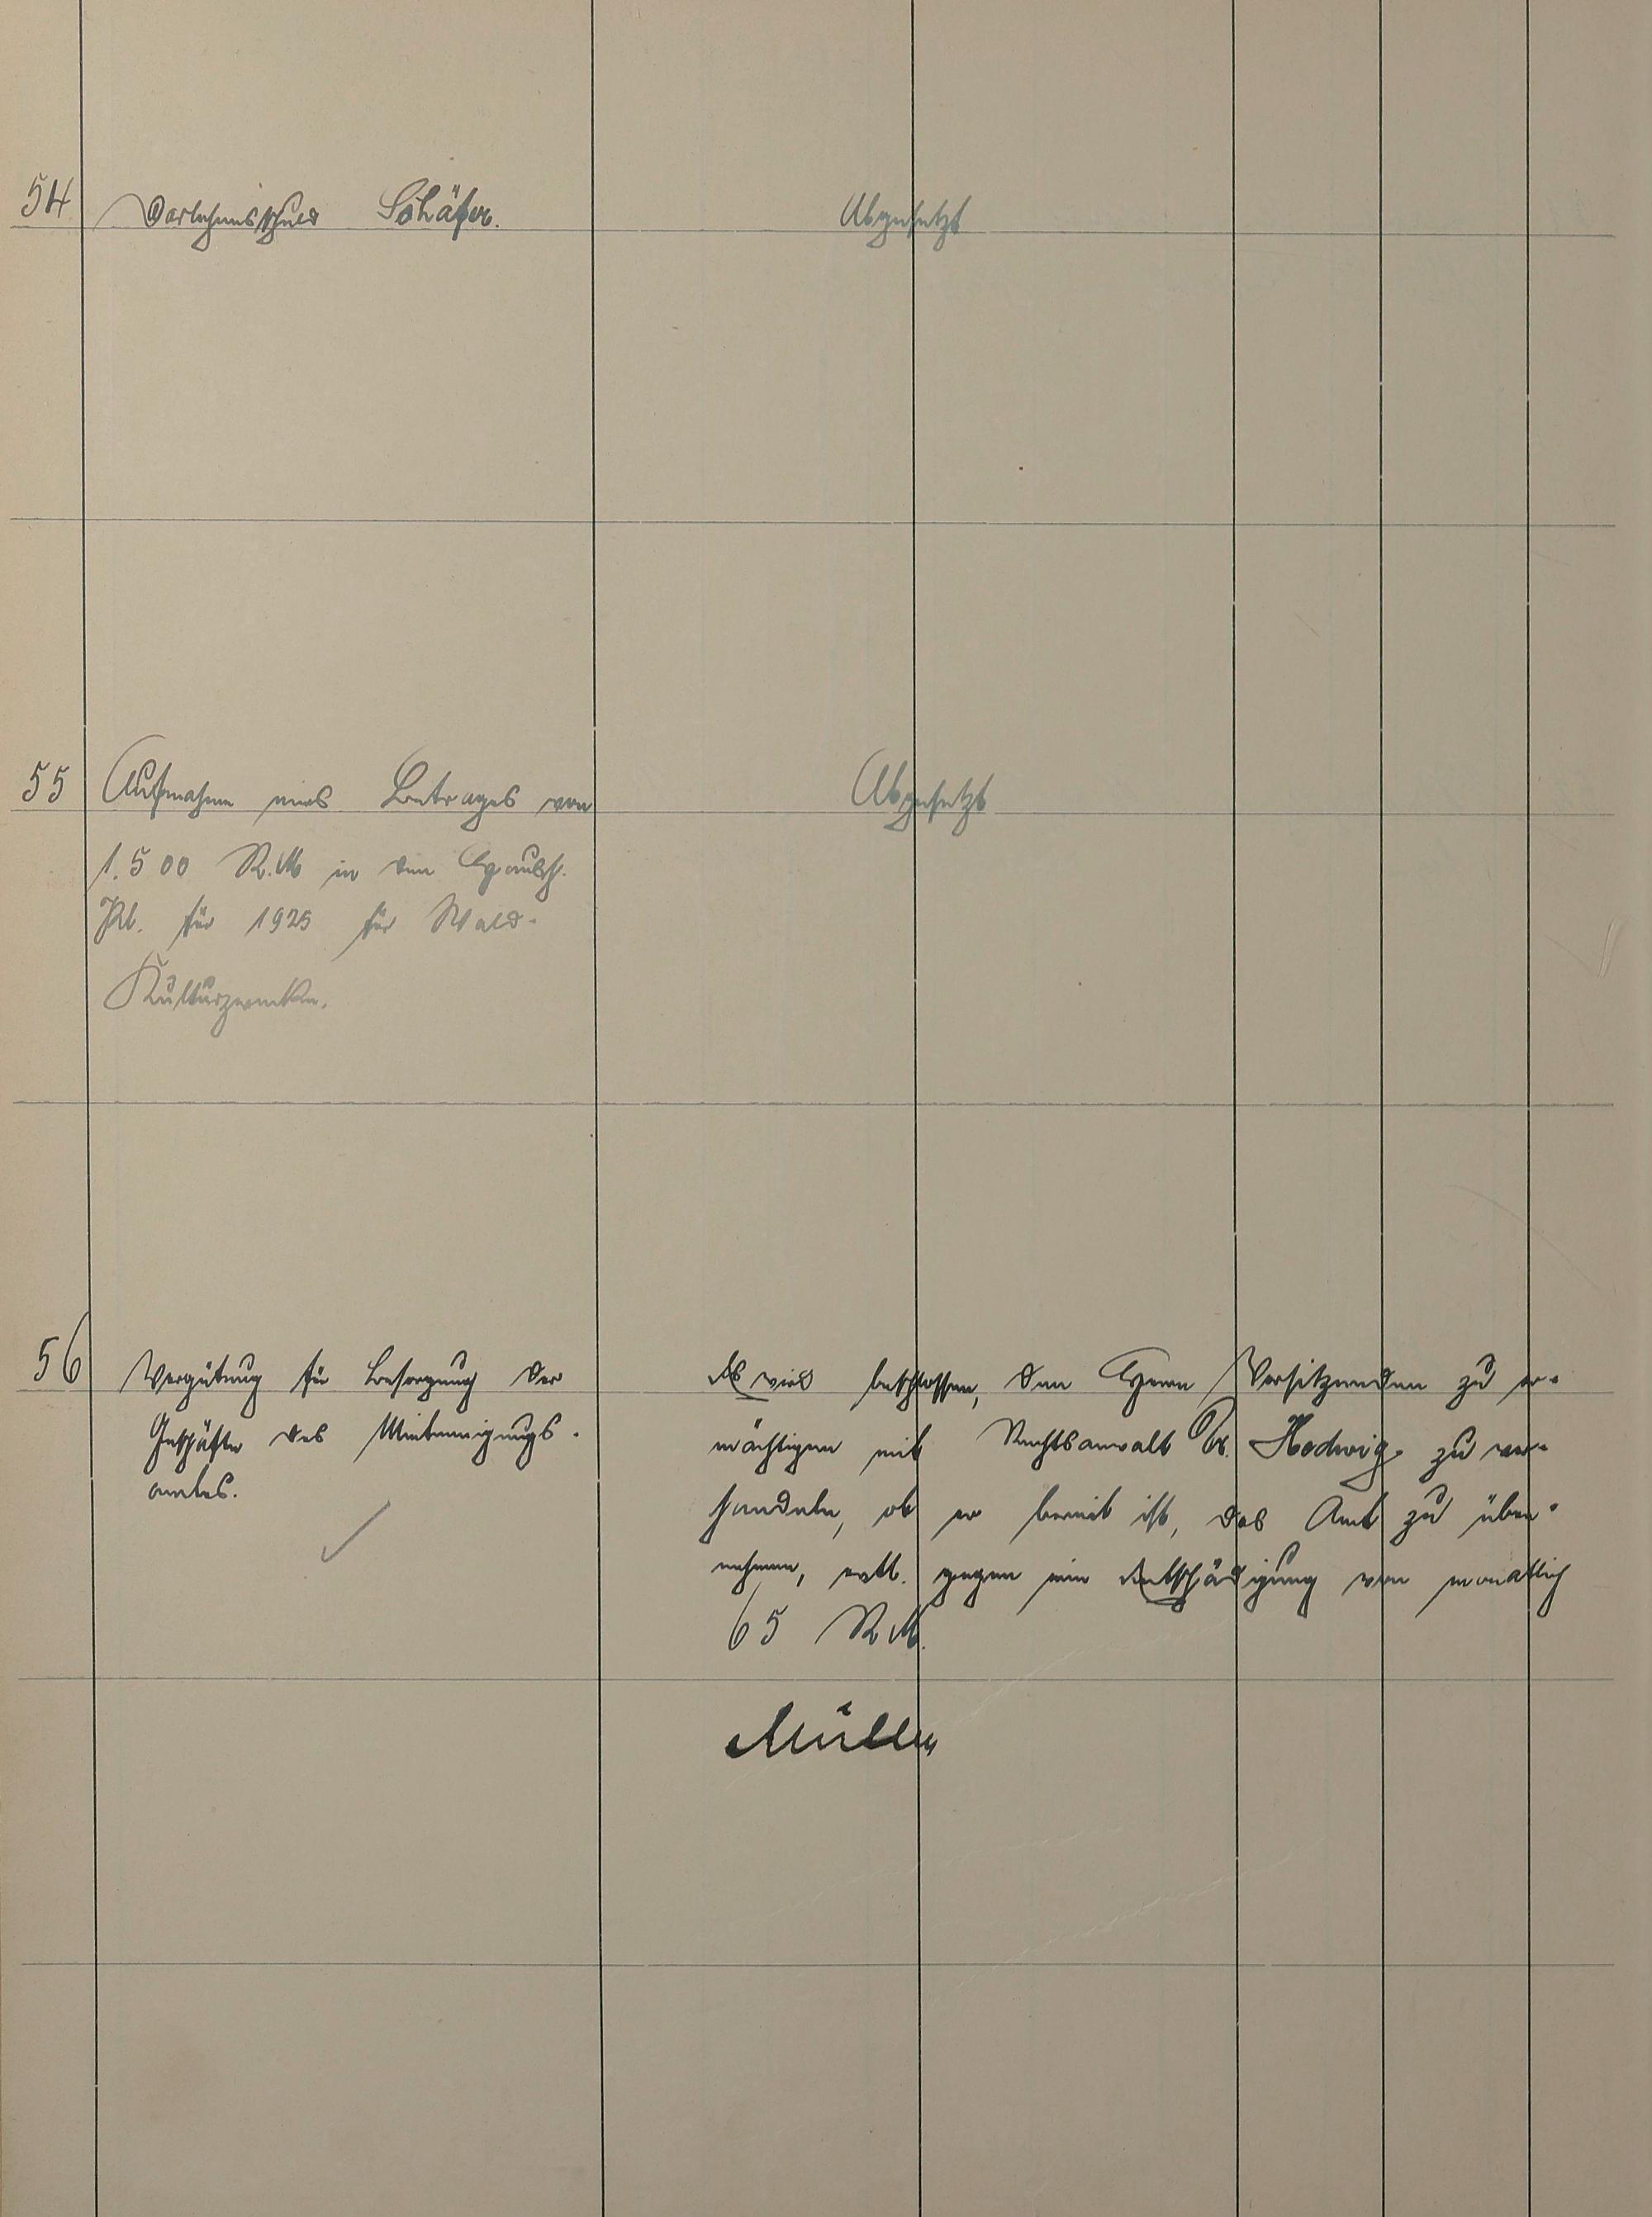 54 Darlehensschuld Schäfer. Abgesetzt
55 Aufnahme eines Betrages von Abgesetzt
1.500 R.M in den Haush.
Pl. für 1925 für Wald-
Kulturzwecke.
56 Vergütung für Besorgung der
Geschäfte des Mieteinigungs-
amtes.
Es wird beschlossen, den Herrn Vorsitzenden zu er-
mächtigen mit Rechtsanwalt Dr. Hedwig zu ver-
handeln, ob er bereit ist, das Amt zu über-
nehmen, evtl. gegen eine Entschädigung von monatlich
65 RM.
Müller